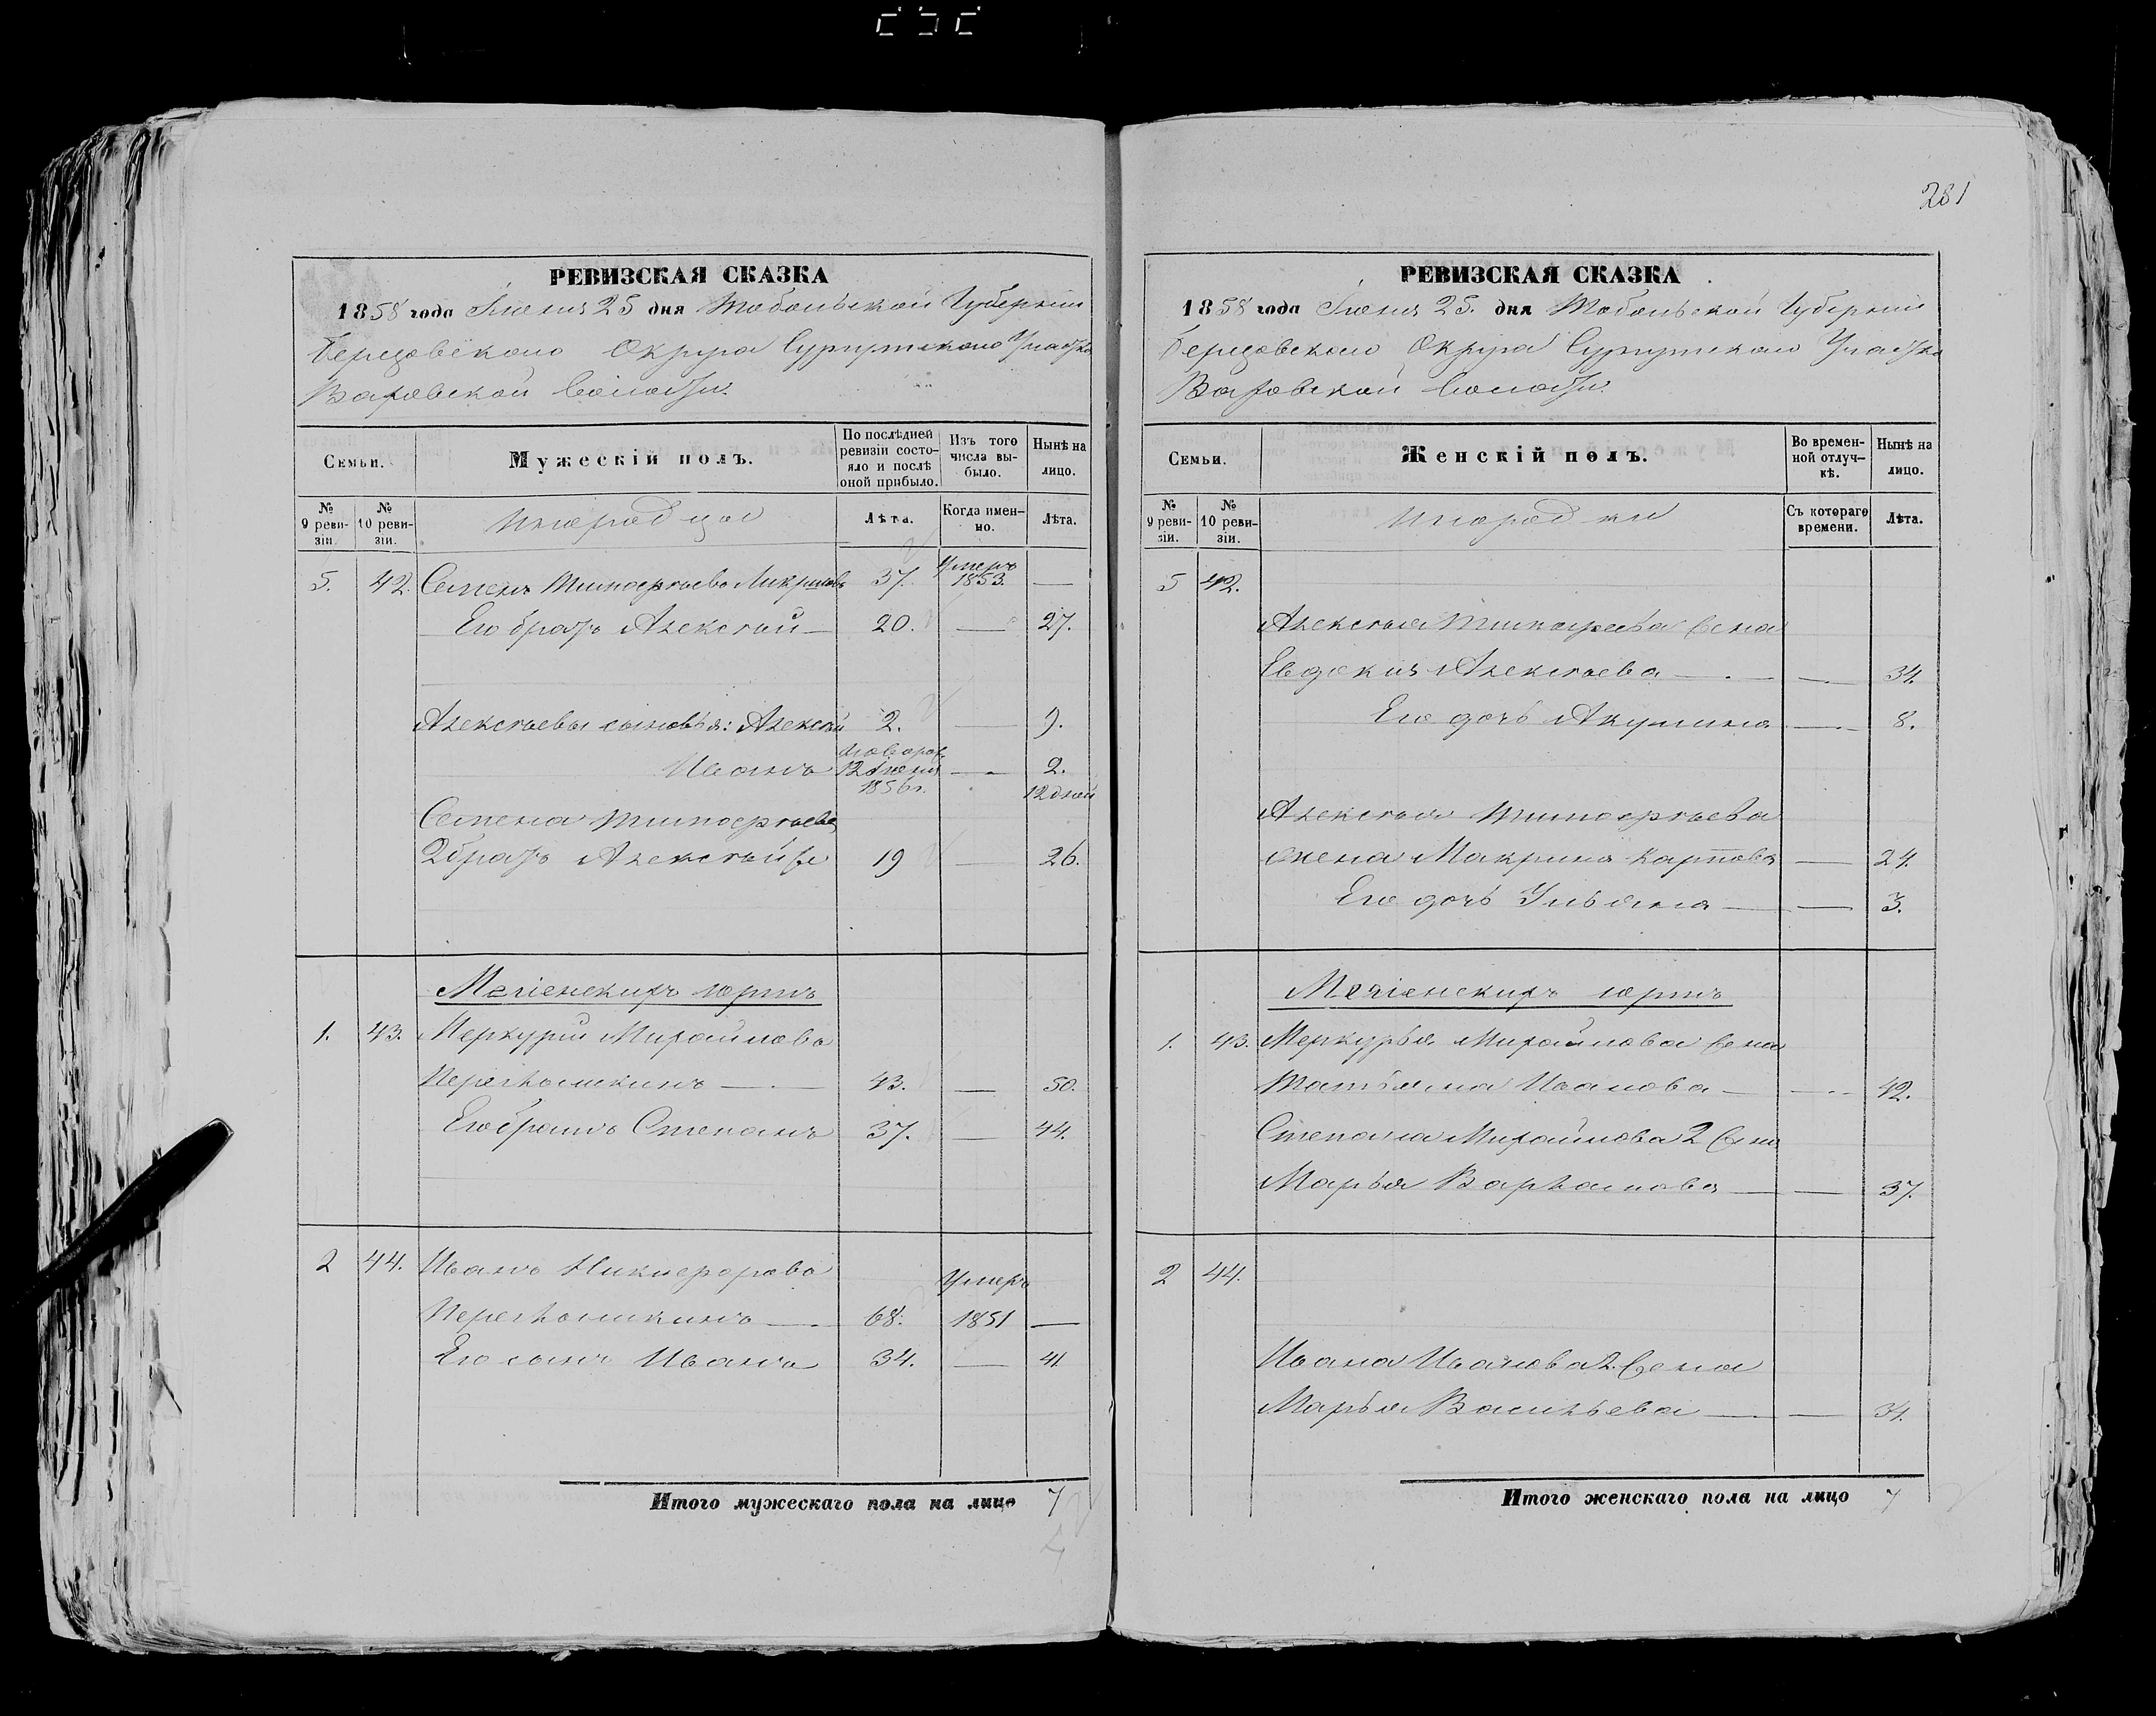 281
РЕВИЗСКАЯ СКАЗКА
1858 года Іюня 25 дня Тобольской Губерніи
Березовскаго Округа Сургутскаго Участка
Ваховской Волости.
Семьи.
Мужескій полъ.
По послѣдней ревизіи состояло и послѣ оной прибыло.
Изъ того числа выбыло.
Нынѣ на лицо.
№ 9 ревизіи.
№ 10 ревизіи.
Инородцы
Лѣта.
Когда именно.
Лѣта.
5. 42. Семенъ Тимофѣевъ 37. Умеръ 1853. —
Его братъ Алексѣй — 20. — 27.
Алексѣевы сыновья: Алексѣй 2. — 9.
Иванъ 12 Іюня 1856 г. — 2. 12 дней
Семена Тимофѣева
2 братъ Алексѣй же 19 — 26.
юртъ
1. 43. Меркурій Михайловъ
43. — 50.
Его братъ Степанъ 37. — 44.
2 44. Иванъ Никифоровъ
68. Умеръ 1851 —
Его сынъ Иванъ 34. — 41
Итого мужескаго пола на лицо 7
РЕВИЗСКАЯ СКАЗКА
1858 года Іюня 25. дня Тобольской Губерніи
Березовскаго Округа Сургутскаго Участка
Ваховской Волости.
Семьи.
Женскій полъ.
Во временной отлучкѣ.
Нынѣ на лицо.
№ 9 ревизіи.
№ 10 ревизіи.
Инородки
Съ котораго времени.
Лѣта.
5 42.
Алексѣя Тимофѣева жена
Евдокия Алексѣева — — 34.
Его дочь Акулина — 8.
Алексѣя Тимофѣева
жена Макрина Карпова — 24.
Его дочь Ульяна — — 3.
юртъ
1. 43. Меркурья Михайлова жена
Татьяна Иванова — — 42.
Степана Михайлова 2 жена
Марья Варламова — — 37.
2 44.
Ивана Иванова 2. жена
Марья Васильева — — 34.
Итого женскаго пола на лицо 7